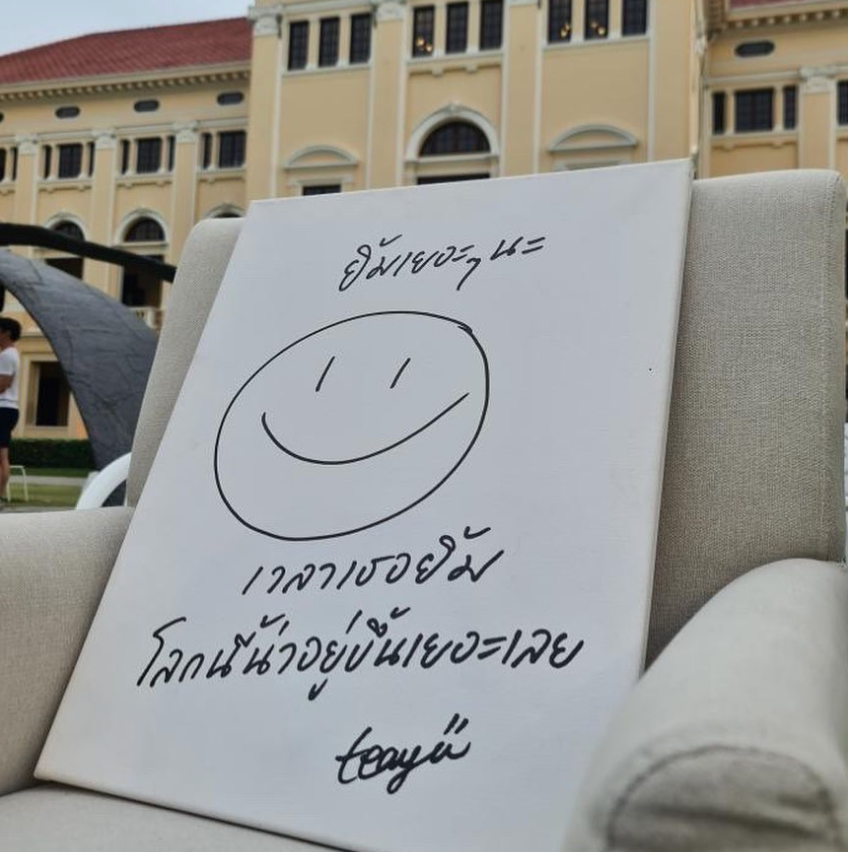 ยิ้มเยอะๆนะ
เวลาเธอยิ้ม
โลกนี้น่าอยู่ขึ้นเยอะเลย